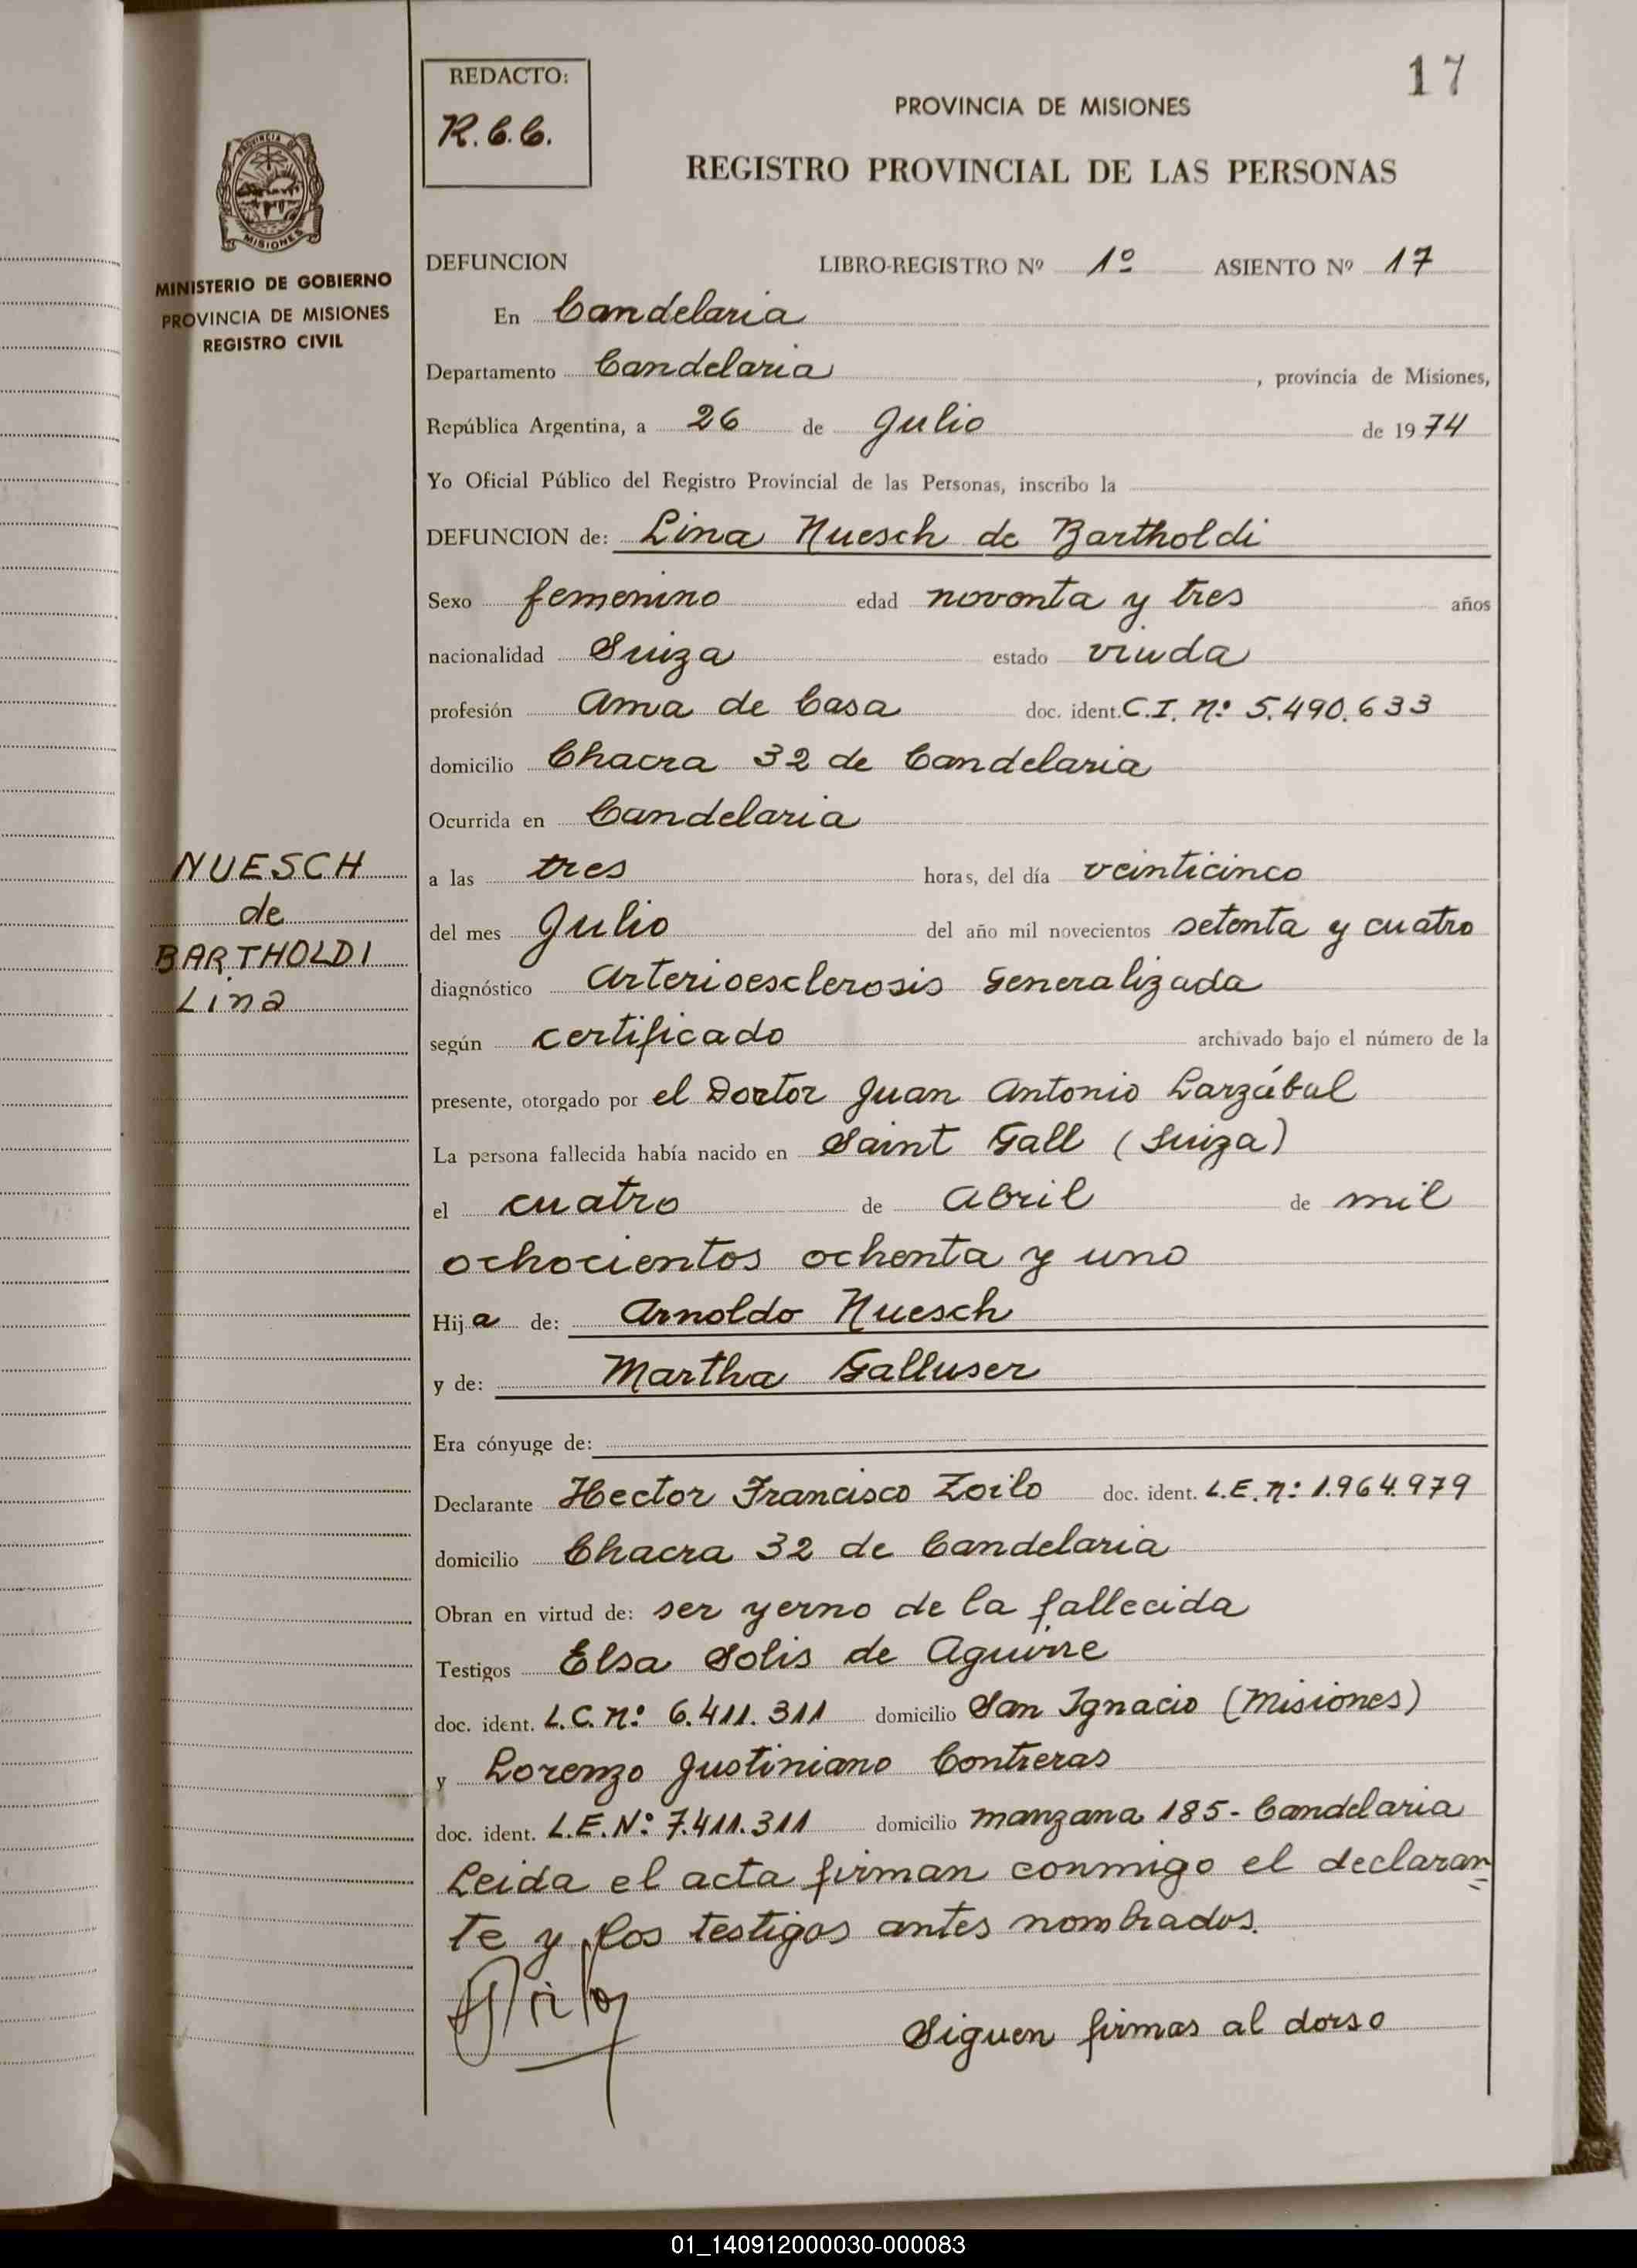 17
REDACTO:
R.C.C.
PROVINCIA DE MISIONES
REGISTRO PROVINCIAL DE LAS PERSONAS
PROVINCIA DE
MISIONES
MINISTERIO DE GOBIERNO
PROVINCIA DE MISIONES
REGISTRO CIVIL
NUESCH
de
BARTHOLDI
Lina
DEFUNCION LIBRO-REGISTRO Nº 1º ASIENTO Nº 17
En Candelaria
Departamento Candelaria, provincia de Misiones,
República Argentina, a 26 de Julio de 1974
Yo Oficial Público del Registro Provincial de las Personas, inscribo la
DEFUNCION de: Lina Nuesch de Bartholdi
Sexo femenino edad noventa y tres años
nacionalidad Suiza estado viuda
profesión Ama de Casa doc. ident. C.I. nº 5.490.633
domicilio Chacra 32 de Candelaria
Ocurrida en Candelaria
a las tres horas, del día veinticinco
del mes Julio del año mil novecientos setenta y cuatro
diagnóstico Arterioesclerosis Generalizada
según certificado archivado bajo el número de la
presente, otorgado por el Doctor Juan Antonio Larzábal
La persona fallecida había nacido en Saint Gall (Suiza)
el cuatro de Abril de mil
ochocientos ochenta y uno
Hija de: Arnoldo Nuesch
y de: Martha Galluser
Era cónyuge de:
Declarante Hector Francisco Zoilo doc. ident. L.E. nº 1.964.979
domicilio Chacra 32 de Candelaria
Obran en virtud de: ser yerno de la fallecida
Testigos Elsa Solis de Aguirre
doc. ident. L.C. nº 6.411.311 domicilio San Ignacio (Misiones)
y Lorenzo Justiniano Contreras
doc. ident. L.E. Nº 7.411.311 domicilio manzana 185 - Candelaria
Leida el acta firman conmigo el declaran=
te y los testigos antes nombrados.
Siguen firmas al dorso
01_140912000030-000083